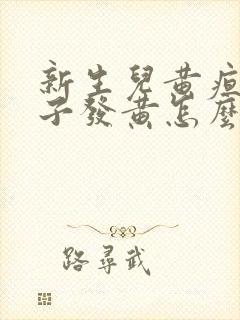 新生兒黃疸
子發黃怎麼
路尋武